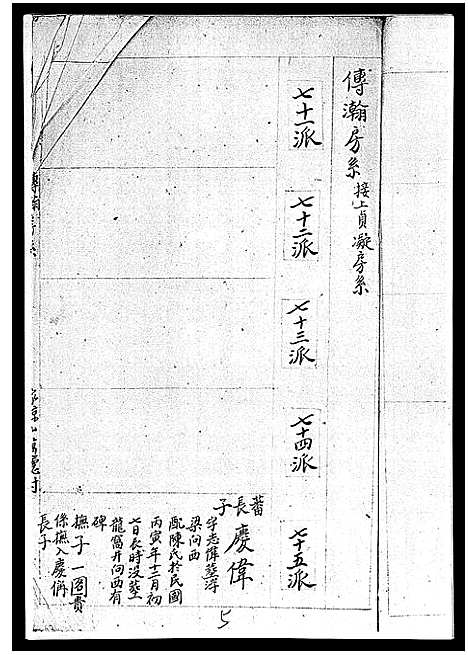 傳瀚房系接上貞凝房系
七十一派
七十二派
七十三派
七十四派
七十五派
蕃長子
慶偉
字志偉塟浮
梁向西
配陳氏於民國
丙寅年十二月初
七日辰時没塟一
龍窩开向西有
碑
撫子一圀貴
係撫入慶儕
長子
傳瀚房系
5